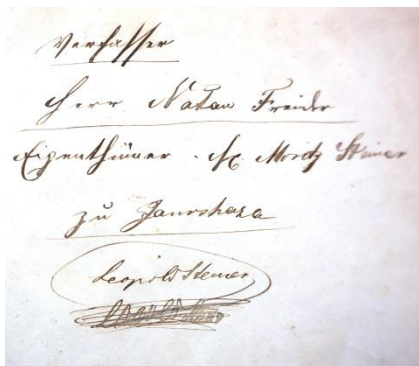 Verfasser
Herr Natan Freider
Eigenthümer Moritz Steiner
zu Janoshaza
Leopold Steiner